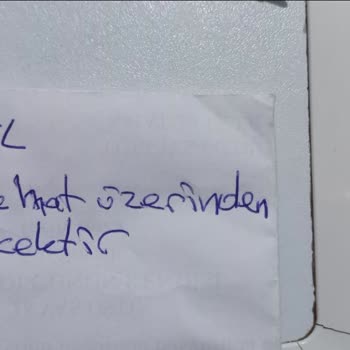 L
e hat üzerinden
cektir